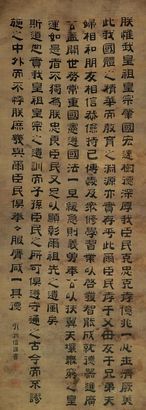 朕惟我皇祖皇宗肇國宏遠樹德深厚我臣民克忠克孝億兆一心世濟厥美
此我國體之精華而教育之淵源亦實存乎此爾臣民孝于父母友于兄弟夫
婦相和朋友相信恭儉持己博愛及衆修學習業以啓發智能成就德器進廣
公益開世務常重國憲遵國法一旦緩急則義勇奉公以扶翼天壤無窮之皇
運如是者不獨爲朕忠良臣民又足以顯彰爾祖先之遺風矣
斯道也實我皇祖皇宗之遺訓而子孫臣民之所可俱遵守通之古今而不謬
施之中外而不悖朕庶幾與爾臣民俱拳拳服膺咸一其德